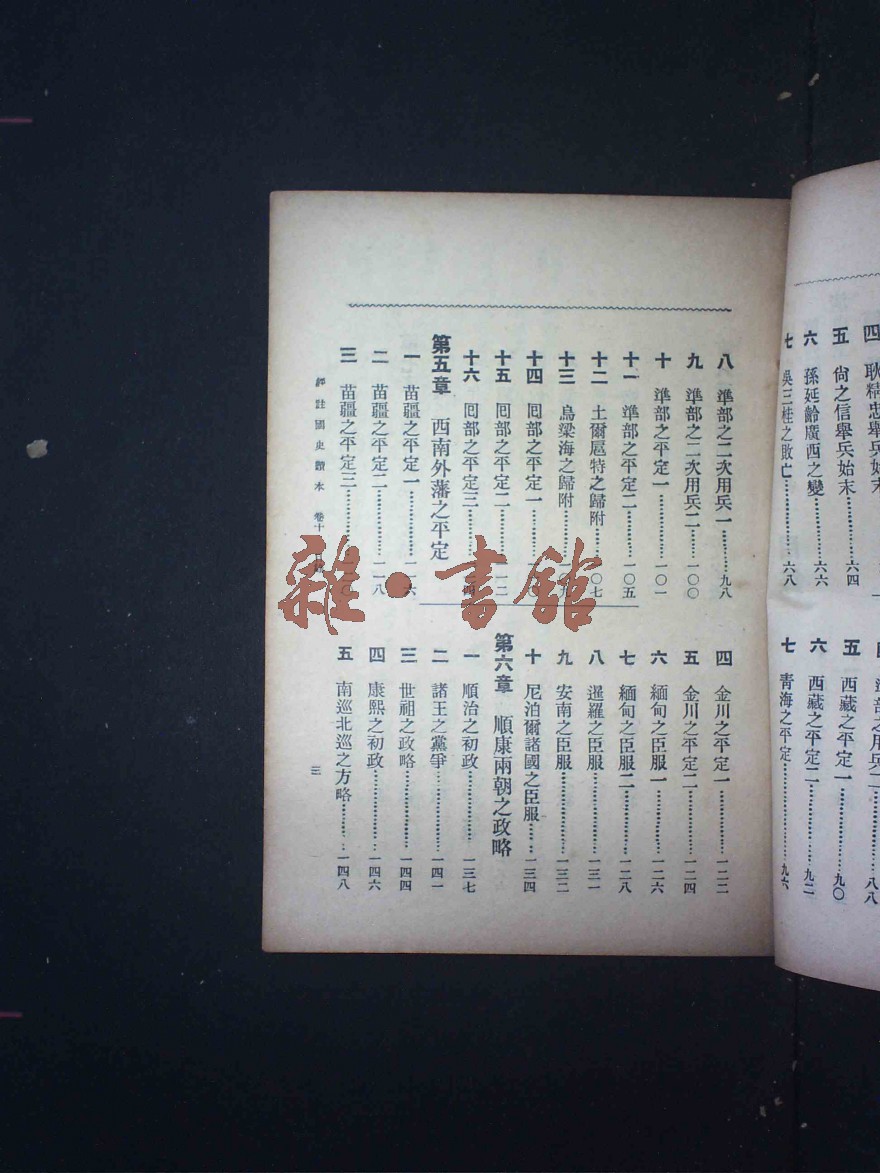 四　耿精忠舉兵始末
五　尙之信舉兵始末…六四
六　孫延齡廣西之變…六六
七　吳三桂之敗亡…六八
五　西藏之平定一…九〇
六　西藏之平定二…九二
七　靑海之平定…九六
八　準部之二次用兵一…九八
九　準部之二次用兵二…一〇〇
十　準部之平定一…一〇一
十一　準部之平定二…一〇五
十二　土爾扈特之歸附…一〇七
十三　烏梁海之歸附
十四　囘部之平定一
十五　囘部之平定二
十六　囘部之平定三
第五章　西南外藩之平定
一　苗疆之平定一…一一六
二　苗疆之平定二…一一八
三　苗疆之平定三
四　金川之平定一…一二二
五　金川之平定二…一二四
六　緬甸之臣服一…一二六
七　緬甸之臣服二…一二八
八　暹羅之臣服…一三一
九　安南之臣服…一三二
十　尼泊爾諸國之臣服…一三四
第六章　順康兩朝之政略
一　順治之初政…一三七
二　諸王之黨爭…一四一
三　世祖之政略…一四四
四　康熙之初政…一四六
五　南巡北巡之方略…一四八
評註國史讀本　卷十　目錄
三
雜·書館